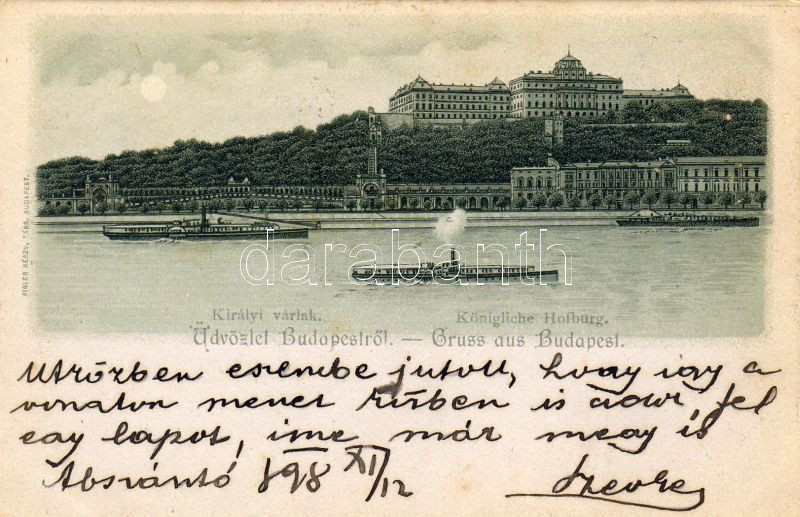 RIGLER RÉSZV. TÁRS. BUDAPEST.
darabanth
Királyi várlak. Königliche Hofburg.
Üdvözlet Budapestről. — Gruss aus Budapest.
Utközben eszembe jutott, hogy így a
vonaton menet közben is adok fel
egy lapot, íme már megy is
Abszántó 898 XI/12